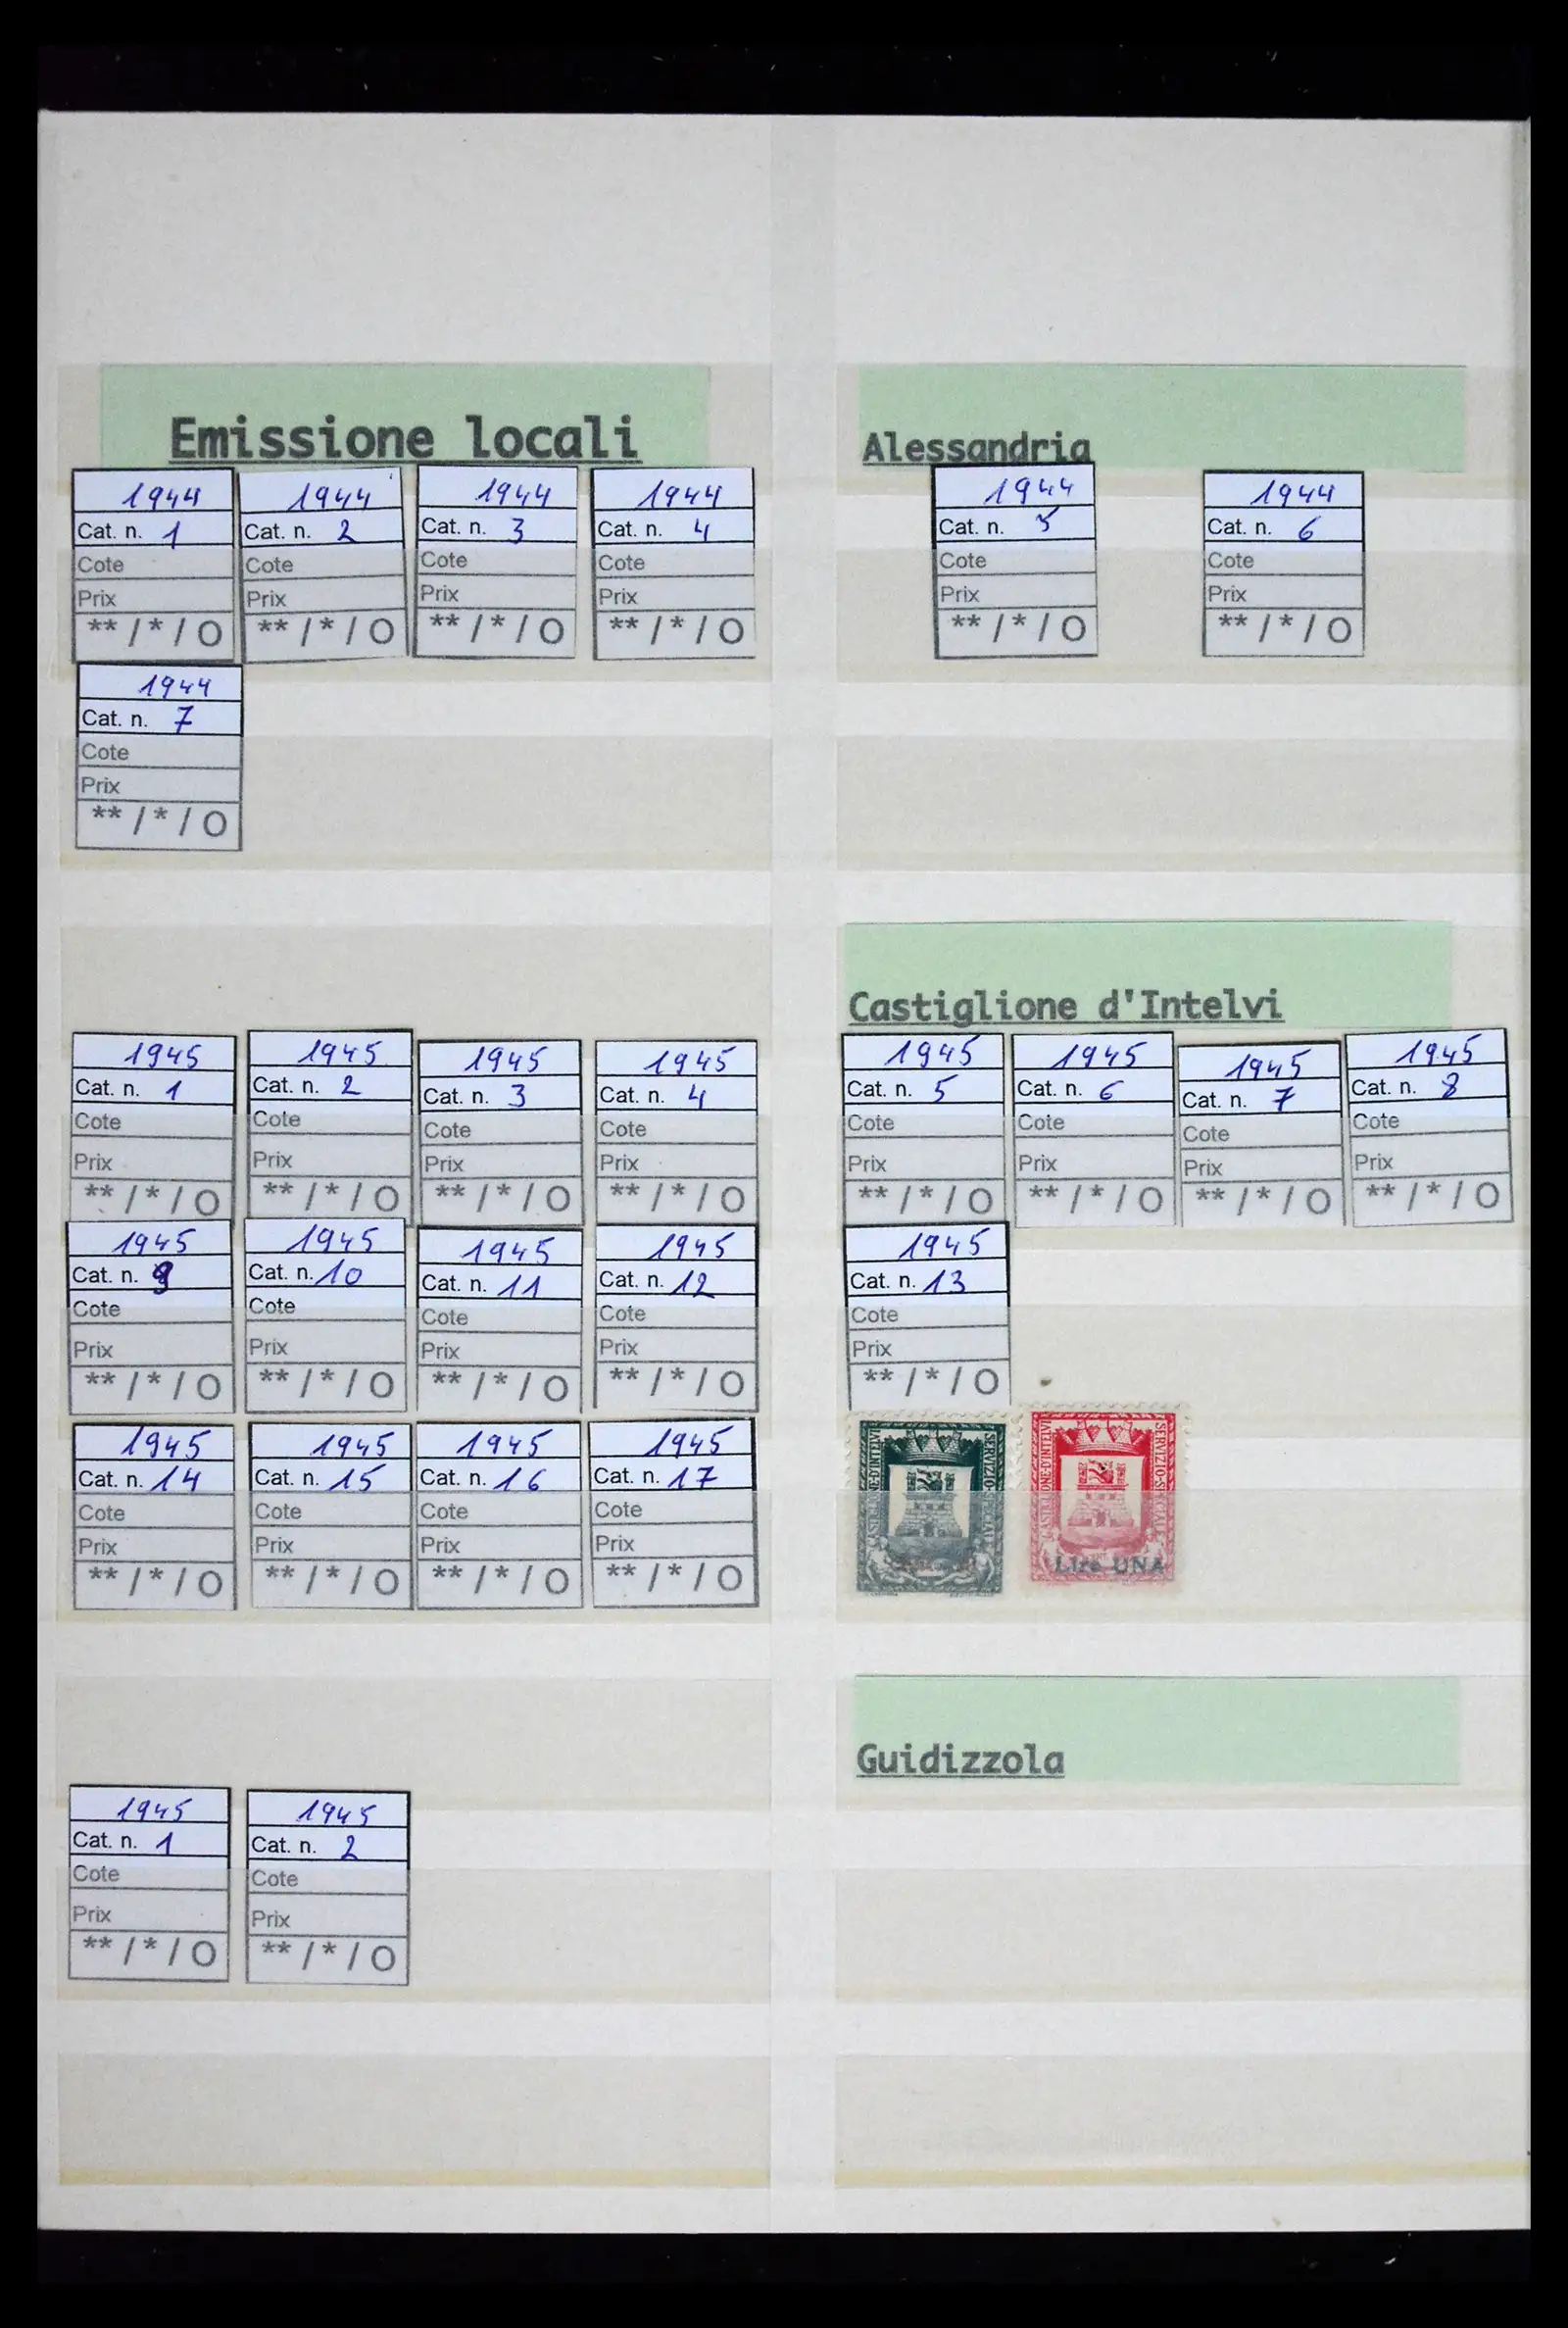 Emissione locali
Alessandria
1944
Cat. n. 1
Cote
Prix
** / * / O
1944
Cat. n. 2
Cote
Prix
** / * / O
1944
Cat. n. 3
Cote
Prix
** / * / O
1944
Cat. n. 4
Cote
Prix
** / * / O
1944
Cat. n. 5
Cote
Prix
** / * / O
1944
Cat. n. 6
Cote
Prix
** / * / O
1944
Cat. n. 7
Cote
Prix
** / * / O
Castiglione d'Intelvi
1945
Cat. n. 1
Cote
Prix
** / * / O
1945
Cat. n. 2
Cote
Prix
** / * / O
1945
Cat. n. 3
Cote
Prix
** / * / O
1945
Cat. n. 4
Cote
Prix
** / * / O
1945
Cat. n. 5
Cote
Prix
** / * / O
1945
Cat. n. 6
Cote
Prix
** / * / O
1945
Cat. n. 7
Cote
Prix
** / * / O
1945
Cat. n. 8
Cote
Prix
** / * / O
1945
Cat. n. 9
Cote
Prix
** / * / O
1945
Cat. n. 10
Cote
Prix
** / * / O
1945
Cat. n. 11
Cote
Prix
** / * / O
1945
Cat. n. 12
Cote
Prix
** / * / O
1945
Cat. n. 13
Cote
Prix
** / * / O
1945
Cat. n. 14
Cote
Prix
** / * / O
1945
Cat. n. 15
Cote
Prix
** / * / O
1945
Cat. n. 16
Cote
Prix
** / * / O
1945
Cat. n. 17
Cote
Prix
** / * / O
SERVIZIO-SPECIALE
CASTIGLIONE-D'INTELVI
SERVIZIO-SPECIALE
Lire UNA
Guidizzola
1945
Cat. n. 1
Cote
Prix
** / * / O
1945
Cat. n. 2
Cote
Prix
** / * / O